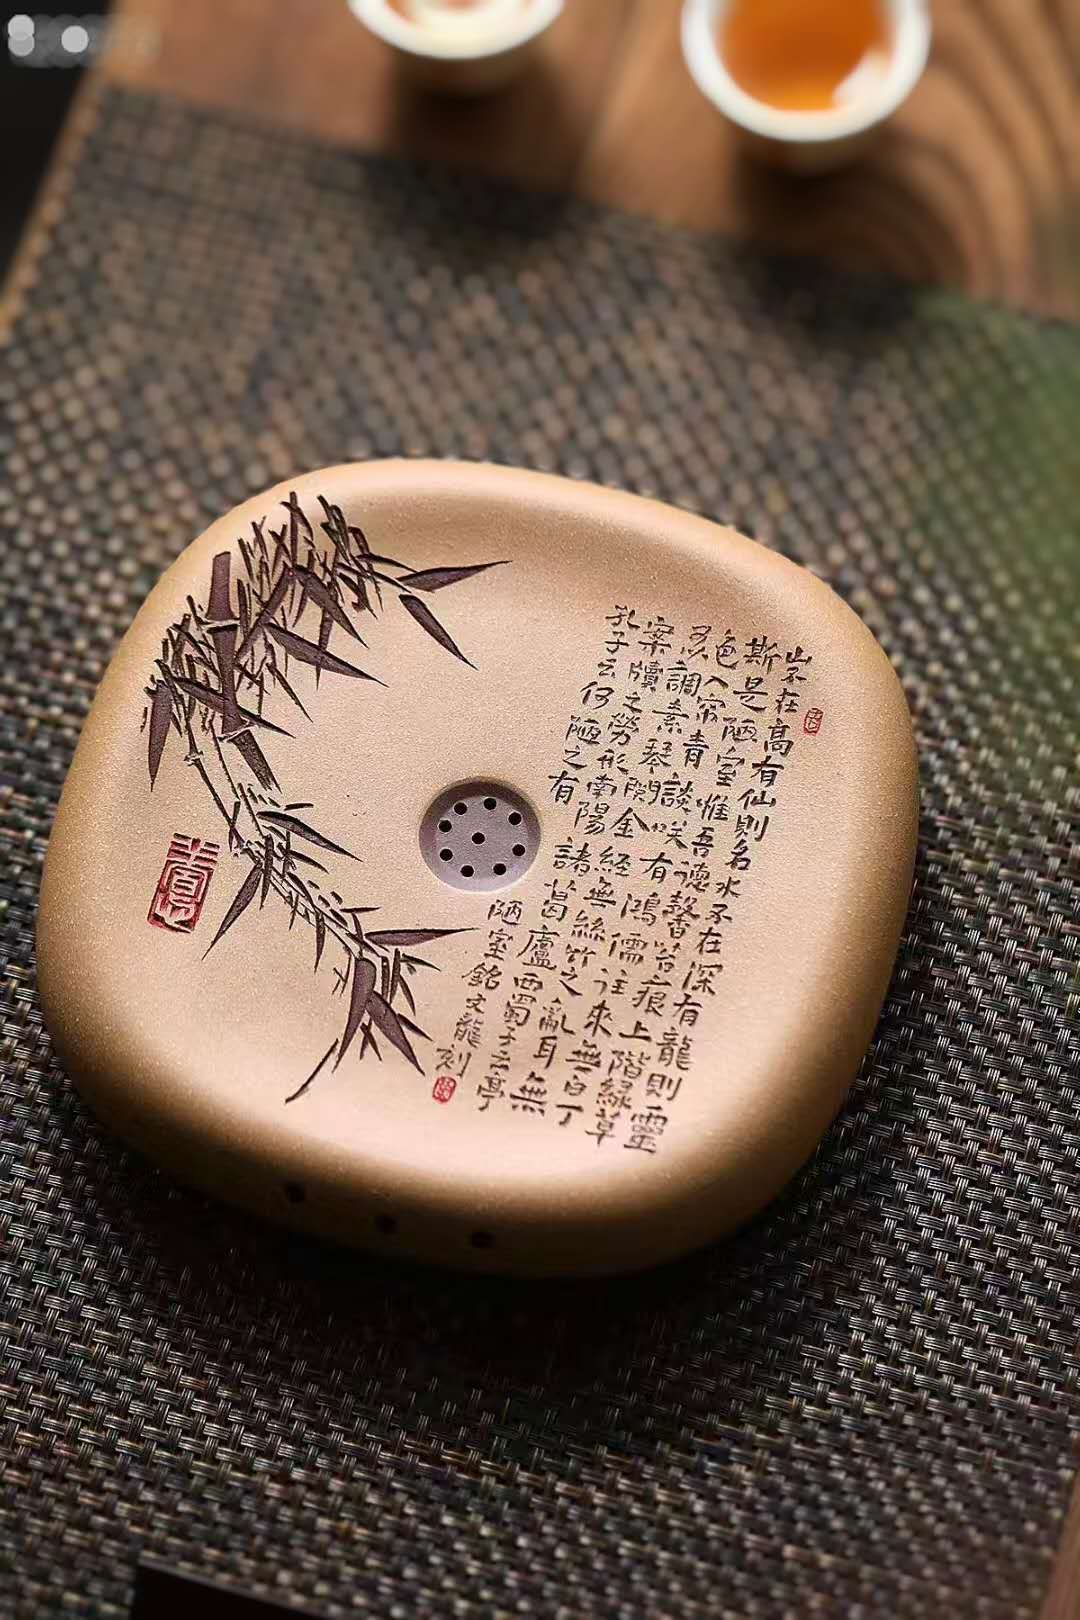 山不在高有仙則名水不在深有龍則靈
斯是陋室惟吾德馨苔痕上階緑草
色入帘青談咲有鴻儒往來無白丁
可以調素琴閱金經無絲竹之亂耳無
案牘之勞形南陽諸葛廬西蜀子云亭
孔子云何陋之有
陋室銘文龍刻